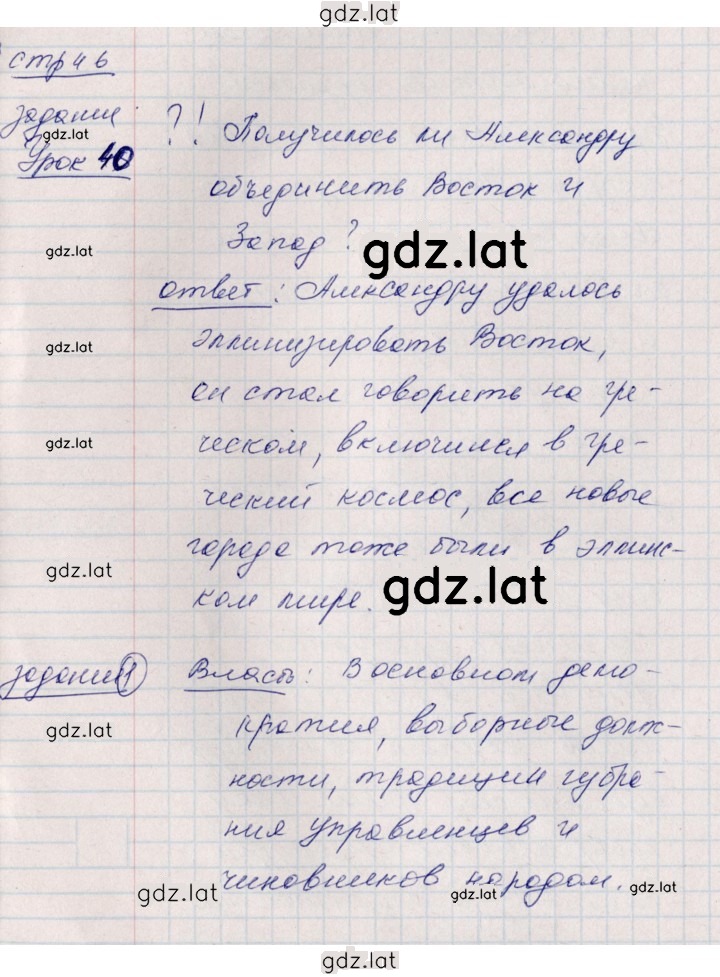 gdz.lat
стр 46
задание ?! Получилось ли Александру
gdz.lat
Урок 40
объединить Восток и
gdz.lat
Запад? gdz.lat
ответ: Александру удалось
gdz.lat
эллинизировать Восток,
он стал говорить на гре-
gdz.lat
ческом, включился в гре-
ческий космос, все новые
города тоже были в эллинс-
gdz.lat
ком мире. gdz.lat
задание 1 Власть: В основном демо-
gdz.lat
кратия, выборные долж-
ности, традиции
ния управленцев и
чиновников народом.
gdz.lat gdz.lat gdz.lat
gdz.lat